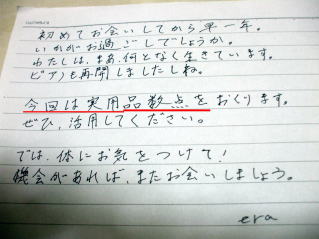 初めてお会いしてから早一年。
いかがお過ごしでしょうか。
わたしは、まあ、何となく生きています。
ピアノも再開しましたしね。
今回は実用品数点をおくります。
ぜひ、活用してください。
では、体にお気をつけて!
機会があれば、またお会いしましょう。
era